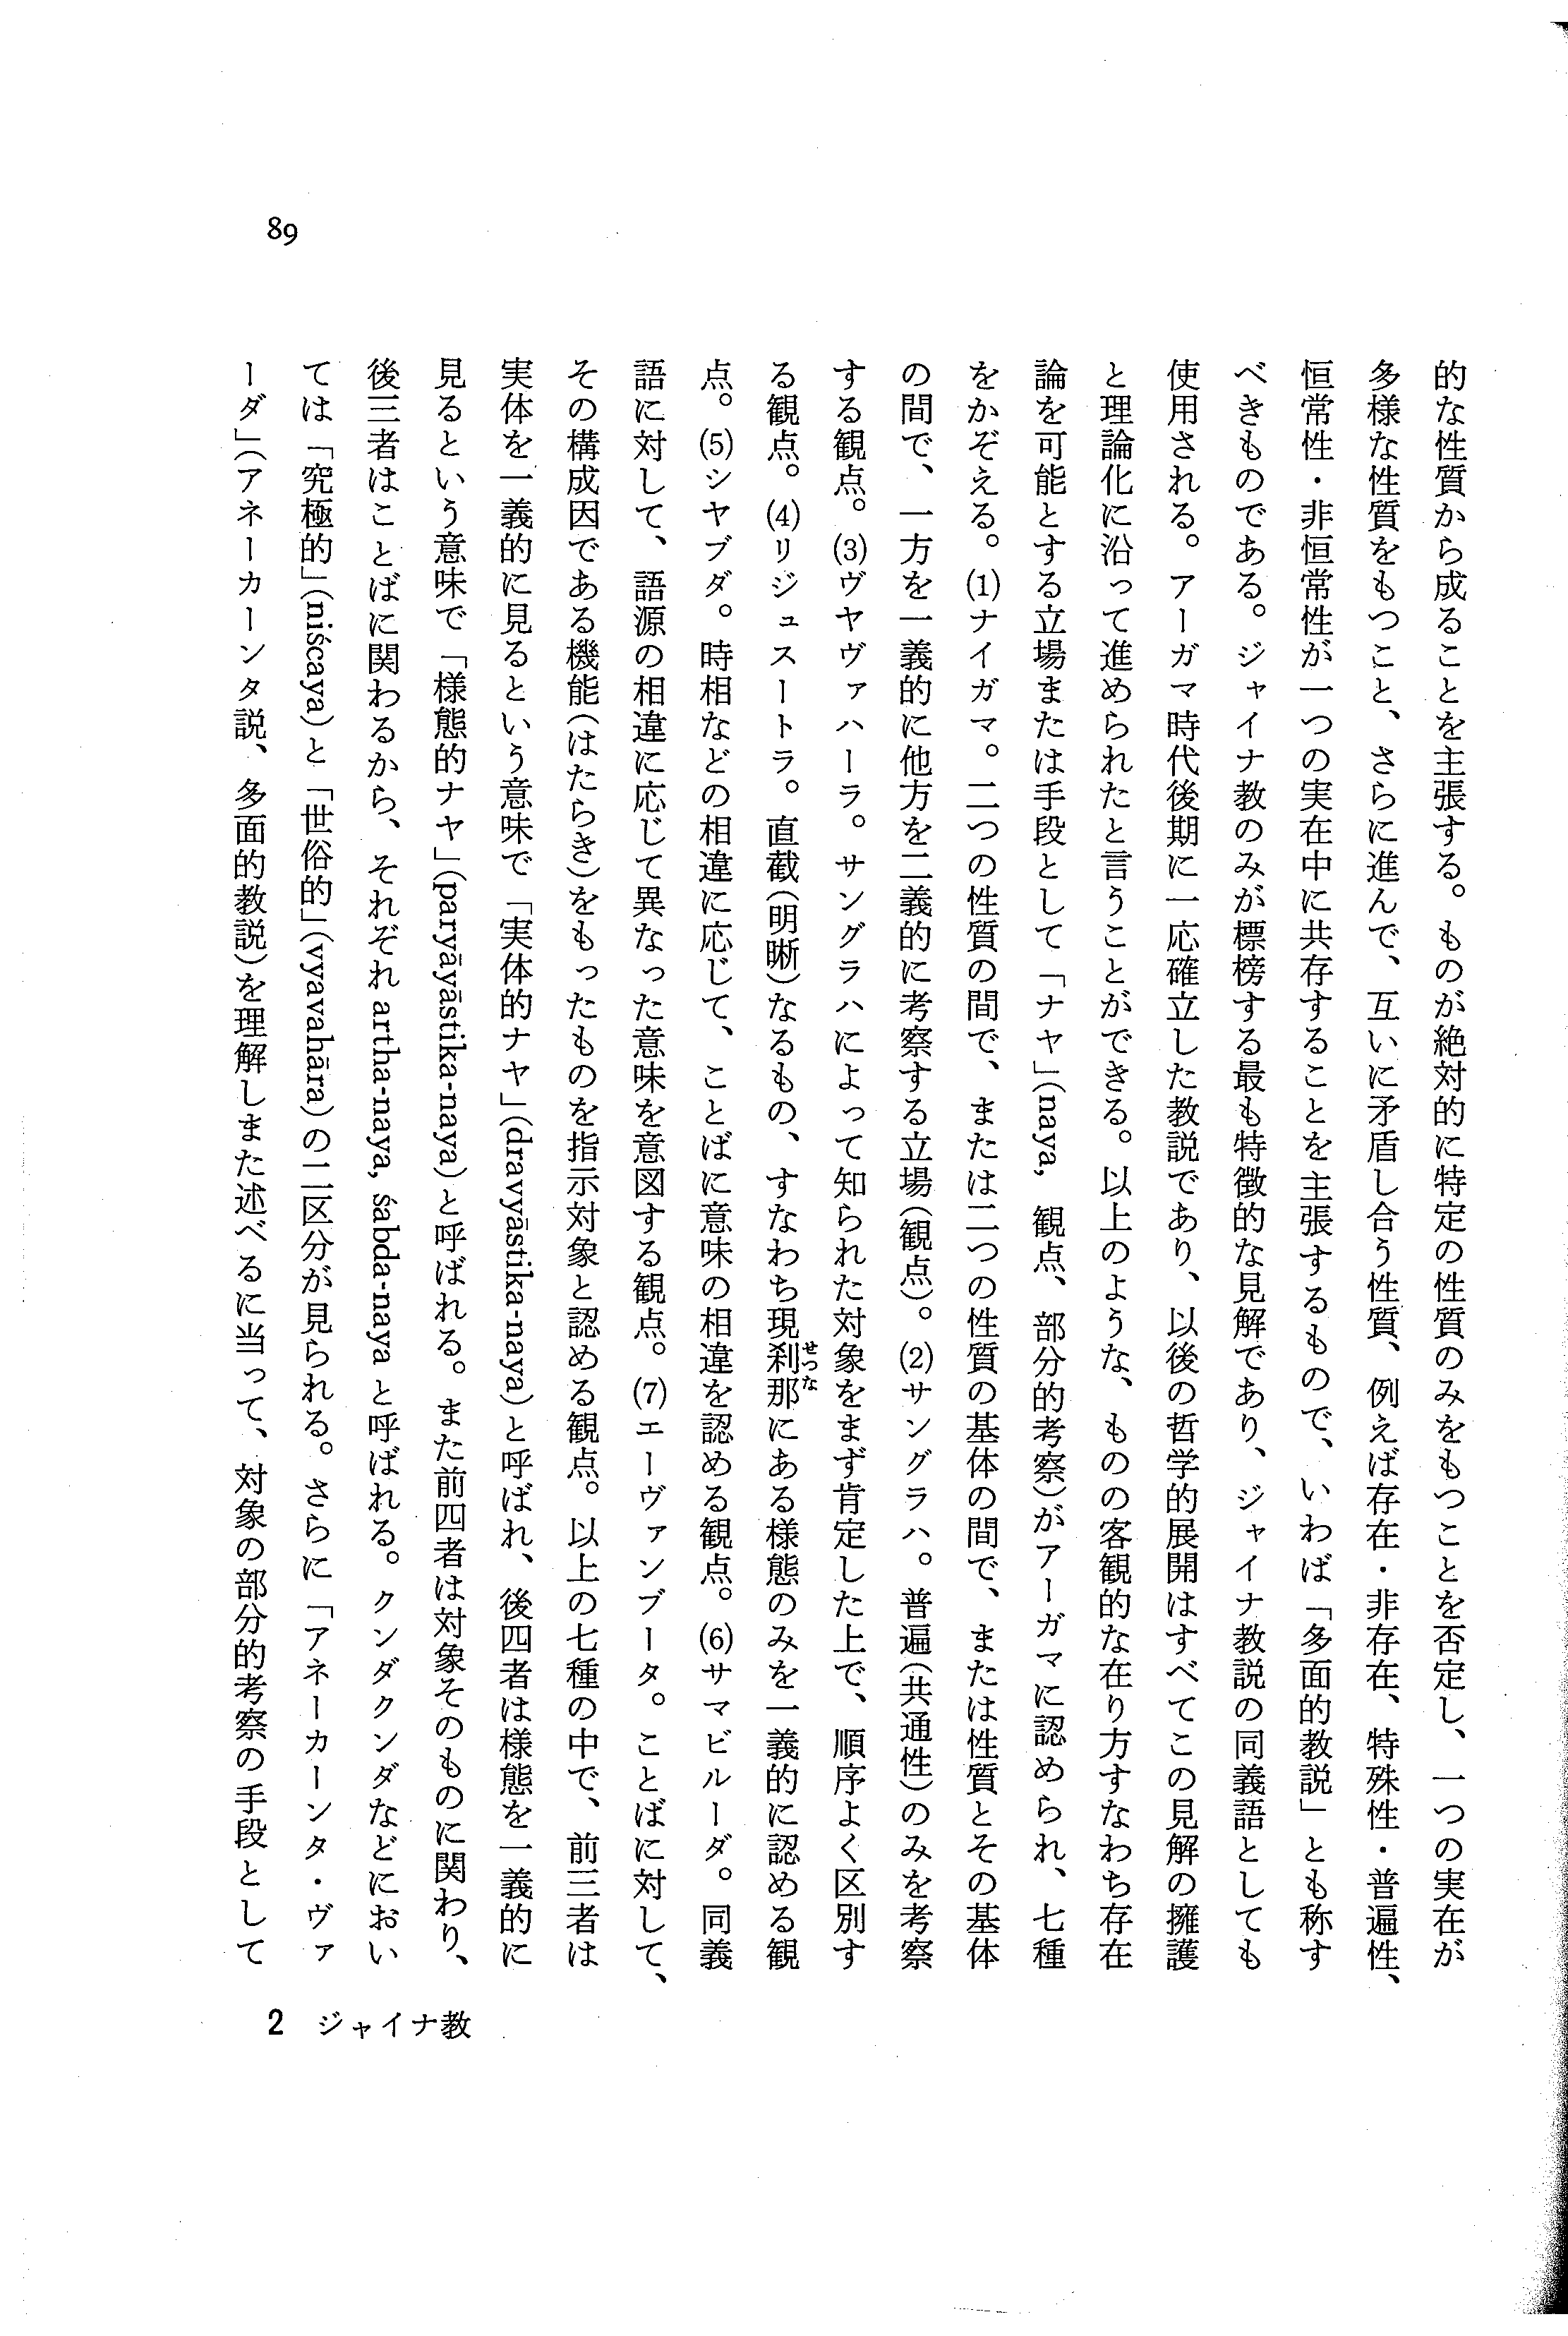 89
的な性質から成ることを主張する。ものが絶対的に特定の性質のみをもつことを否定し、一つの実在が
多様な性質をもつこと、さらに進んで、互いに矛盾し合う性質、例えば存在・非存在、特殊性・普遍性、
恒常性・非恒常性が一つの実在中に共存することを主張するもので、いわば「多面的教説」とも称す
べきものである。ジャイナ教のみが標榜する最も特徴的な見解であり、ジャイナ教説の同義語としても
使用される。アーガマ時代後期に一応確立した教説であり、以後の哲学的展開はすべてこの見解の擁護
と理論化に沿って進められたと言うことができる。以上のような、ものの客観的な在り方すなわち存在
論を可能とする立場または手段として「ナヤ」(naya, 観点、部分的考察)がアーガマに認められ、七種
をかぞえる。(1)ナイガマ。二つの性質の間で、または二つの性質の基体の間で、または性質とその基体
の間で、一方を一義的に他方を二義的に考察する立場(観点)。(2)サングラハ。普遍(共通性)のみを考察
する観点。(3)ヴヤヴァハーラ。サングラハによって知られた対象をまず肯定した上で、順序よく区別す
る観点。(4)リジュスートラ。直截(明晰)なるもの、すなわち現刹那せつなにある様態のみを一義的に認める観
点。(5)シヤブダ。時相などの相違に応じて、ことばに意味の相違を認める観点。(6)サマビルーダ。同義
語に対して、語源の相違に応じて異なった意味を意図する観点。(7)エーヴァンブータ。ことばに対して、
その構成因である機能(はたらき)をもったものを指示対象と認める観点。以上の七種の中で、前三者は
実体を一義的に見るという意味で「実体的ナヤ」(dravyāstika-naya)と呼ばれ、後四者は様態を一義的に
見るという意味で「様態的ナヤ」(paryāyāstika-naya)と呼ばれる。また前四者は対象そのものに関わり、
後三者はことばに関わるから、それぞれ artha-naya, śabda-naya と呼ばれる。クンダクンダなどにおい
ては「究極的」(niścaya)と「世俗的」(vyavahāra)の二区分が見られる。さらに「アネーカーンタ・ヴァ
ーダ」(アネーカーンタ説、多面的教説)を理解しまた述べるに当って、対象の部分的考察の手段として
2 ジャイナ教